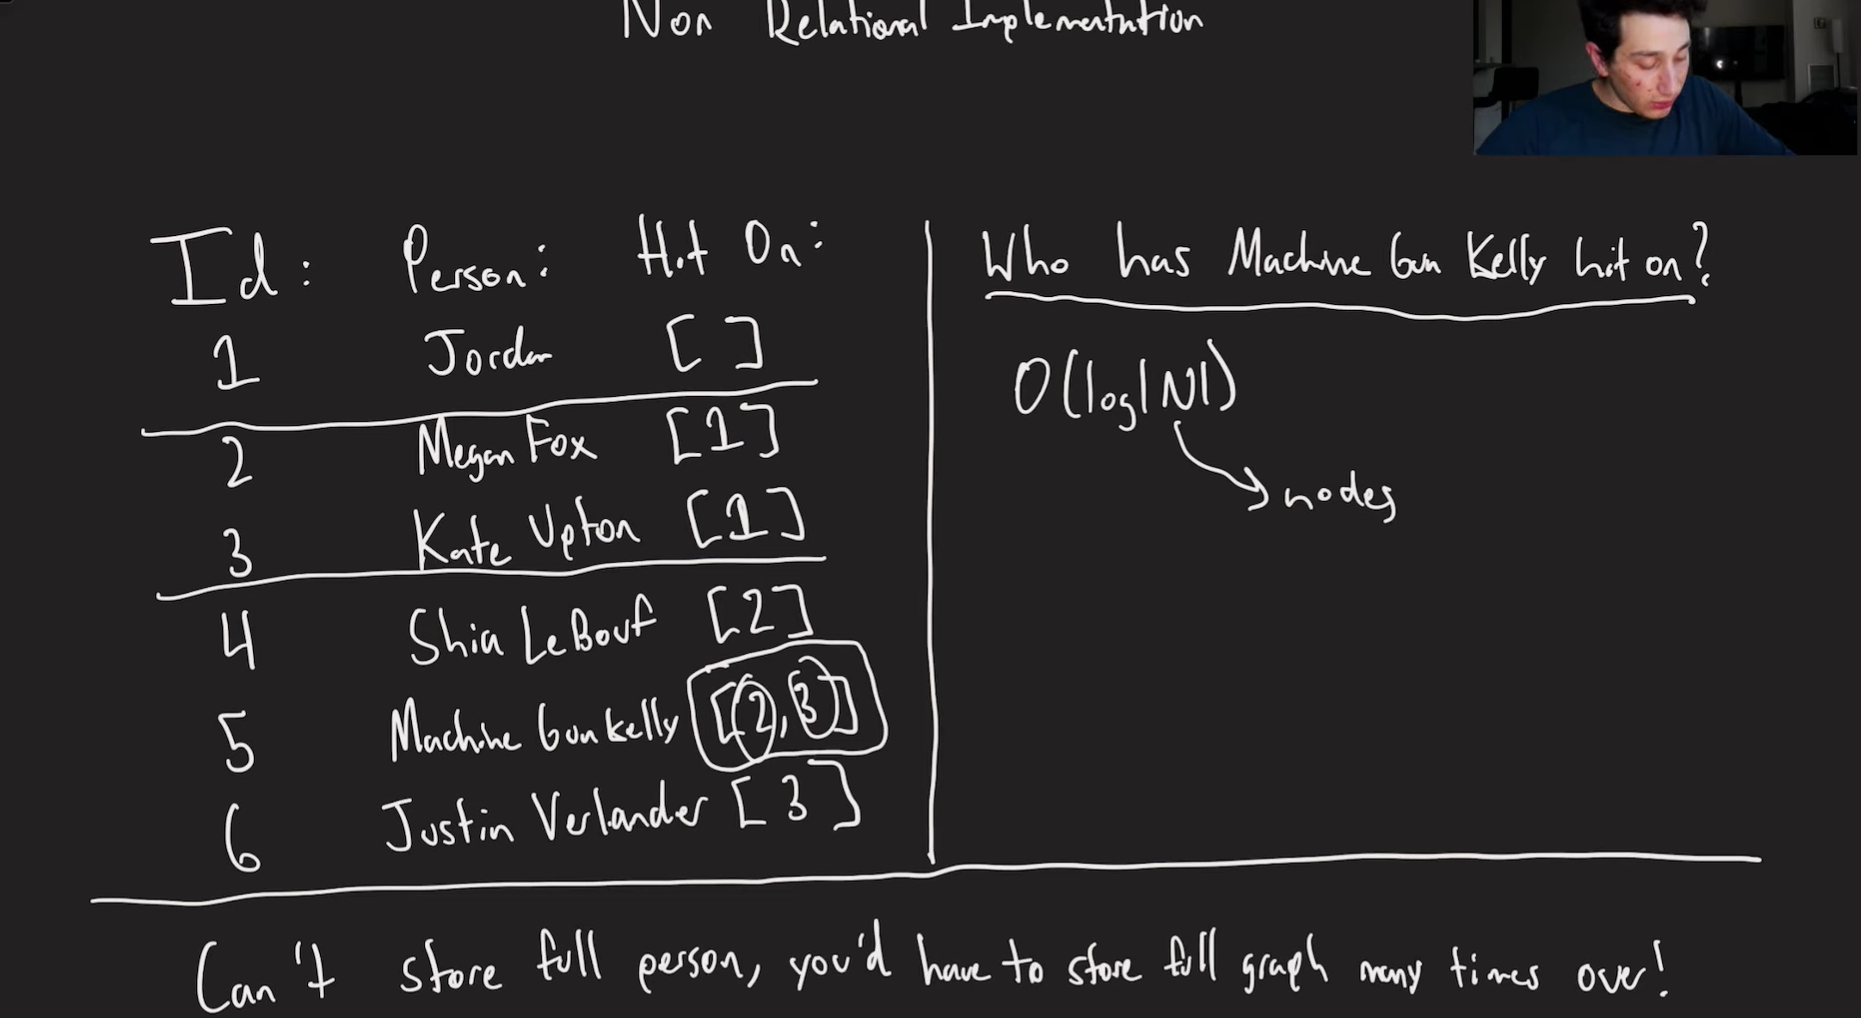 Non Relational Implementation
Id: Person: Hit On:
1 Jordan [ ]
2 Megan Fox [1]
3 Kate Upton [1]
4 Shia LeBouf [2]
5 Machine Gun Kelly [2, 3]
6 Justin Verlander [3]
Who has Machine Gun Kelly hit on?
O(log|N|)
nodes
Can't store full person, you'd have to store full graph many times over!